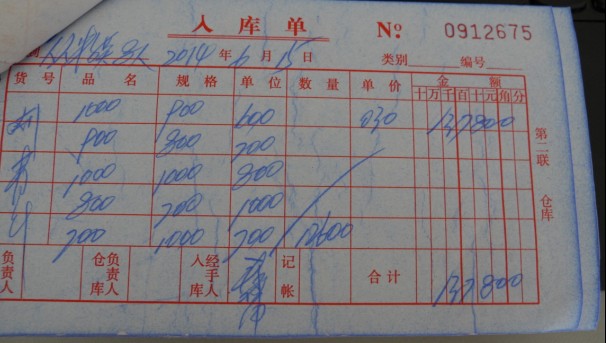 入库单 No 0912675
2014年6月15日 类别 编号
货号 品名 规格 单位 数量 单价 金额
十万千百十元角分
1000 900 600 030 137800
900 800 700
1000 1000 800
800 700 1000
700 1000 700 12600
负责人 仓库负责人 入库经手人 记帐 合计 137800
第二联 仓库